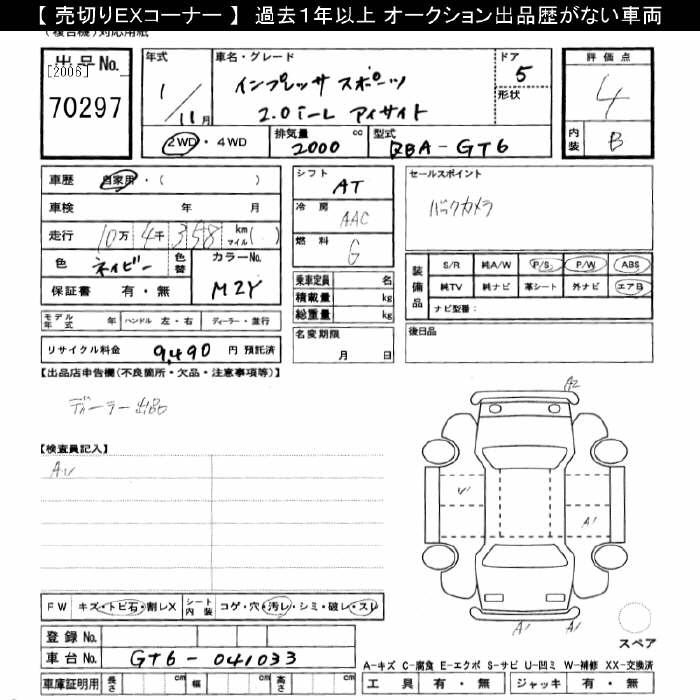 【 売切りEXコーナー 】 過去1年以上 オークション出品歴がない車両
(複合機)対応用紙
出品No. [2006] 70297
年式 1/11月
車名・グレード インプレッサ スポーツ 2.0i-L アイサイト
ドア 5
形状
評価点 4
内装 B
2WD・4WD
排気量 2000 cc
型式 DBA-GT6
車歴 自家用・( )
車検 年 月
走行 10万 4千 358 km マイル( )
色 ネイビー 色替 カラーNo. M2Y
保証書 有・無
シフト AT
冷房 AAC
燃料 G
乗車定員 名
積載量 kg
総重量 kg
セールスポイント
バックカメラ
装備品 S/R 純A/W P/S P/W ABS
純TV 純ナビ 革シート 外ナビ エアB
ナビ型番:
モデル年式 年 ハンドル 左・右 ディーラー・並行
名変期限 月 日
後日品
リサイクル料金 9,490 円 預託済
【出品店申告欄(不良箇所・欠品・注意事項等)】
ディーラー出品
A2
【検査員記入】
A1
A1 A1
FW キズ・トビ石・割レX シート内装 コゲ・穴・汚レ・シミ・破レ・スレ
登録No.
車台No. GT6-041033
スペア
A-キズ C-腐食 E-エクボ S-サビ U-凹ミ W-補修 XX-交換済
車庫証明用 長さ cm 幅 cm 高さ cm
工具 有・無 ジャッキ 有・無